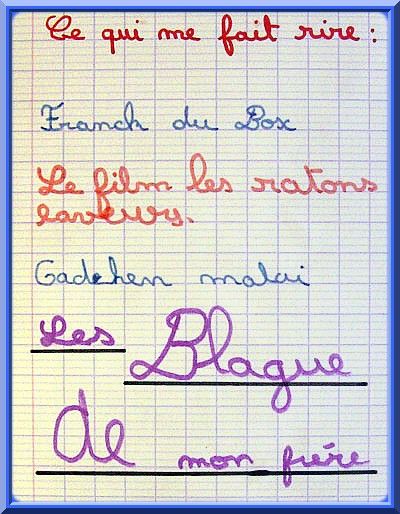 Ce qui me fait rire :
Franck du Box
Le film les ratons
laveurs.
Gad elhen malai
Les Blague
de mon frére